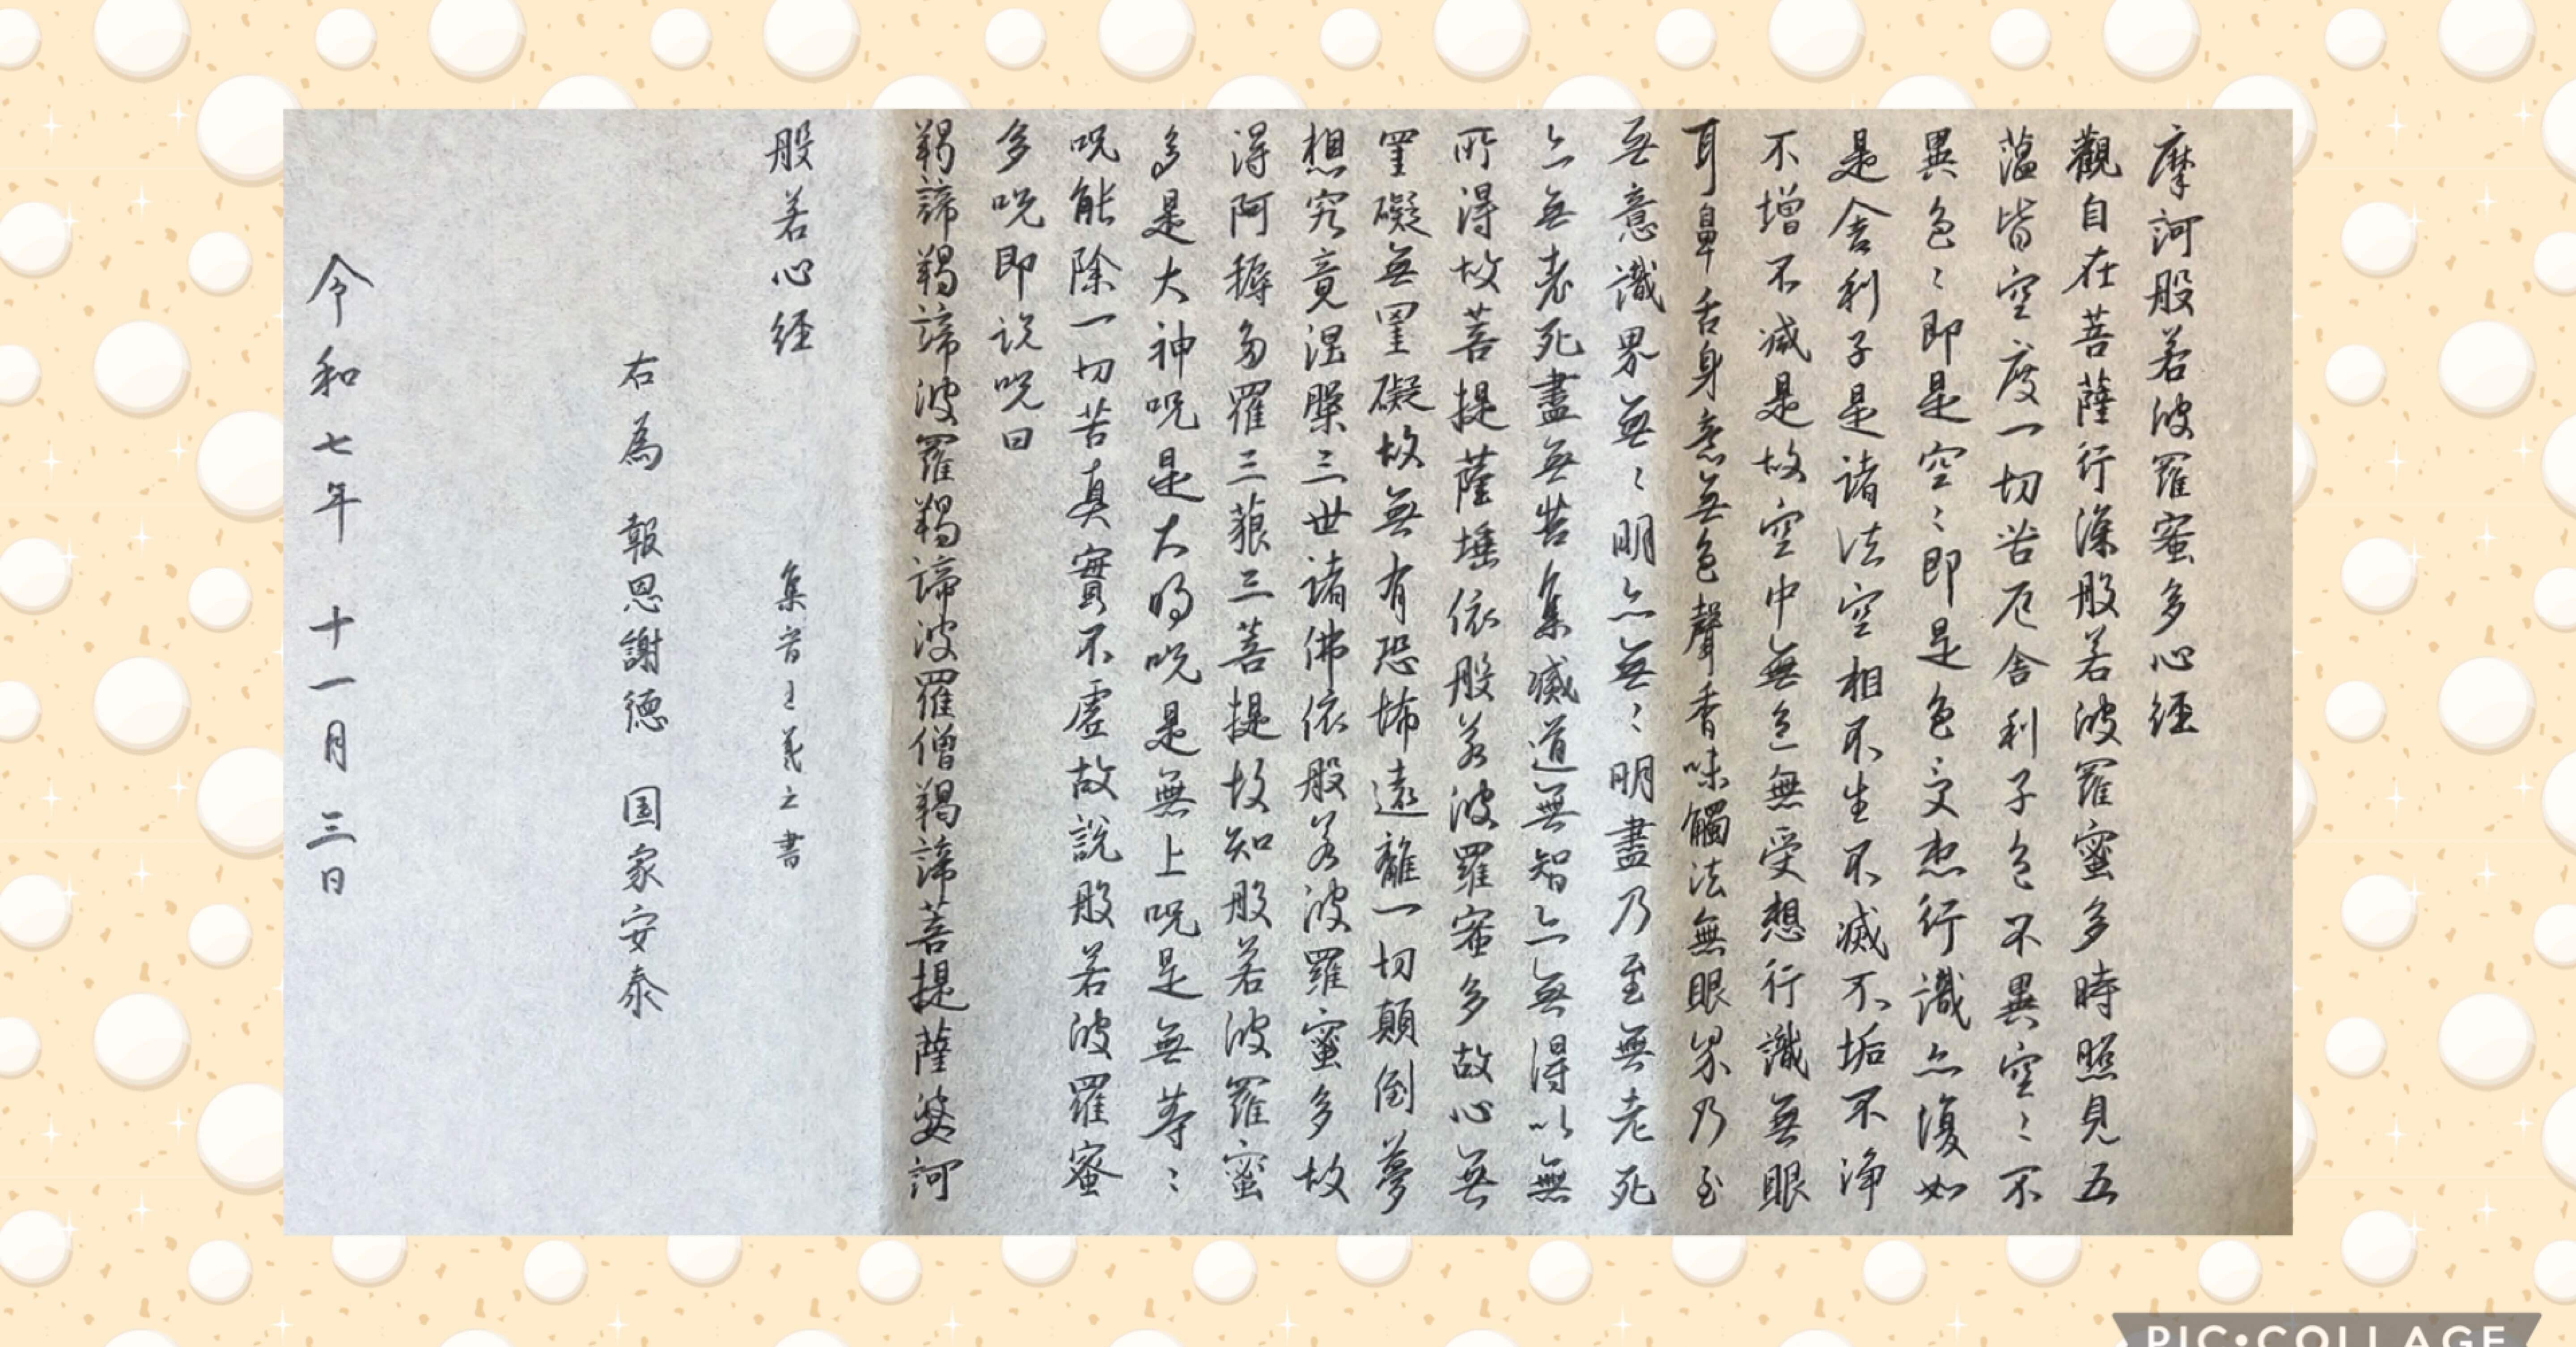 摩訶般若波羅蜜多心経
觀自在菩薩行深般若波羅蜜多時照見五
蕰皆空度一切苦厄舎利子色不異空〻不
異色〻即是空〻即是色受想行識亦復如
是舎利子是諸法空相不生不滅不垢不浄
不增不減是故空中無色無受想行識無眼
耳鼻舌身意無色聲香味觸法無眼界乃至
無意識界無〻明亦無〻明盡乃至無老死
亦無老死盡無苦集滅道無智亦無得以無
所得故菩提薩埵依般若波羅蜜多故心無
罣礙無罣礙故無有恐怖遠離一切顛倒夢
想究竟涅槃三世諸佛依般若波羅蜜多故
得阿耨多羅三藐三菩提故知般若波羅蜜
多是大神呪是大明呪是無上呪是無等〻
呪能除一切苦真實不虛故說般若波羅蜜
多呪即説呪曰
羯諦羯諦波羅羯諦波羅僧羯諦菩提薩婆訶
般若心経
集字王羲之書
右為 報恩謝德 国家安泰
令和七年 十一月三日
PIC•COLLAGE